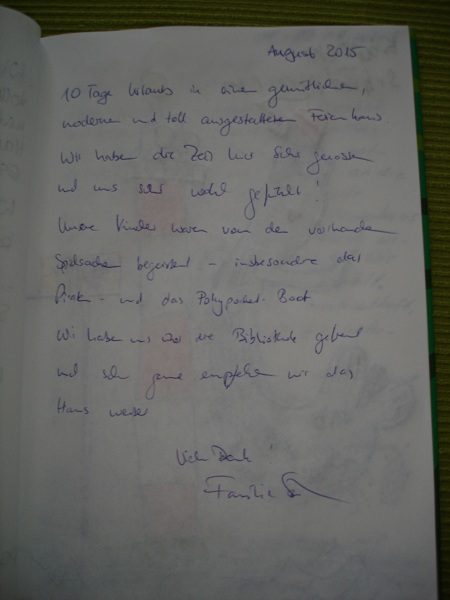 August 2015
10 Tage Urlaub in einem gemütlichen,
modernen und toll ausgestatteten Ferienhaus
Wir haben die Zeit hier sehr genossen
und uns sehr wohl gefühlt!
Unsere Kinder waren von den vorhandenen
Spielsachen begeistert - insbesondere das
Piraten- und das Pollypocket-Boot
Wir haben uns über die Bibliothek gefreut
und sehr gerne empfehlen wir das
Haus weiter
Vielen Dank!
Familie